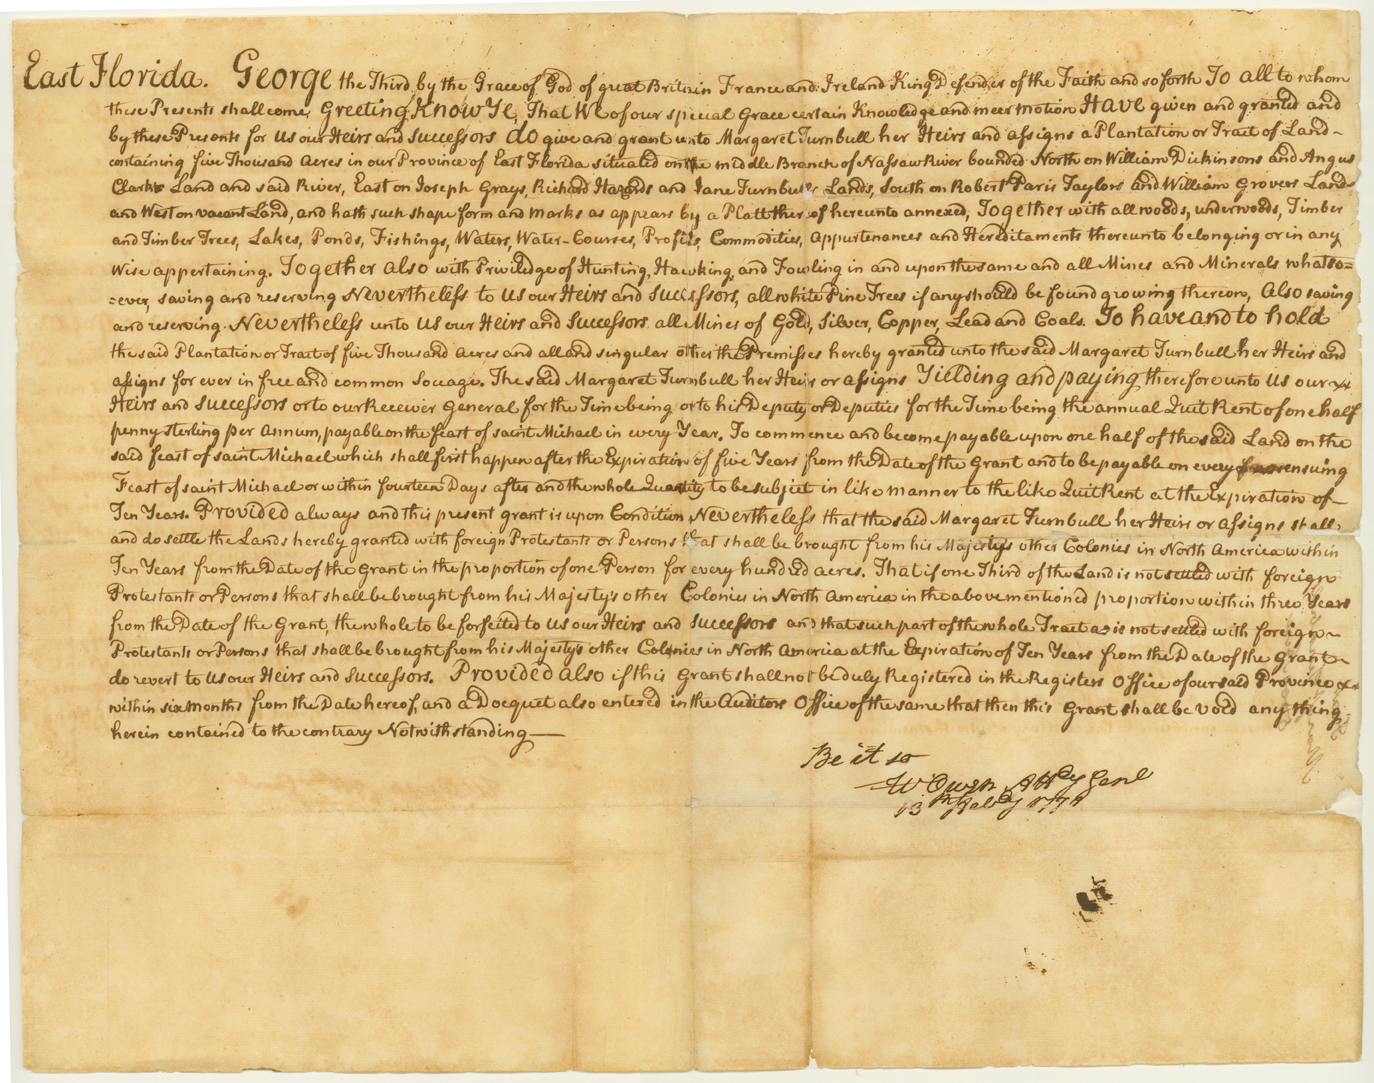 East Florida. George the Third by the Grace of God of great Britain France and Ireland King Defender of the Faith and so forth To all to whom
these Presents shall come, Greeting, Know Ye, That We of our special Grace certain Knowledge and meer motion Have given and granted and
by these Presents for Us our Heirs and Successors do give and grant unto Margaret Turnbull her Heirs and assigns a Plantation or Tract of Land
containing five Thousand Acres in our Province of East Florida situated on the middle Branch of Nassaw River bounded North on William Dickinsons and Angus
Clarks Land and said River, East on Joseph Grays, Richard Hazards and Jane Turnbulls Lands, South on Robert Paris Taylors and William Grovers Land
and West on vacant Land, and hath such shape form and marks as appears by a Platt thereof hereunto annexed, Together with all woods, underwoods, Timber
and Timber Trees, Lakes, Ponds, Fishings, Waters, Water-Courses, Profits, Commodities, Appurtenances and Hereditaments thereunto belonging or in any
wise appertaining. Together also with Priviledge of Hunting, Hawking, and Fowling in and upon the same and all Mines and Minerals whatso=
=ever, saving and reserving Nevertheless to Us our Heirs and Successors, all white Pine Trees if any should be found growing thereon, Also saving
and reserving Nevertheless unto Us our Heirs and Successors all Mines of Gold, Silver, Copper, Lead and Coals. To have and to hold
the said Plantation or Tract of five Thousand Acres and all and singular other the Premisses hereby granted unto the said Margaret Turnbull her Heirs and
assigns for ever in free and common Socage. The said Margaret Turnbull her Heirs or assigns Yielding and paying therefore unto Us our
Heirs and Successors or to our Receiver General for the Time being or to his Deputy or Deputies for the Time being the annual Quit Rent of one half
penny sterling per Annum, payable on the feast of saint Michael in every Year. To commence and become payable upon one half of the said Land on the
said feast of saint Michael which shall first happen after the Expiration of five Years from the Date of the Grant and to be payable on every ensuing
Feast of saint Michael or within fourteen Days after and the whole Quantity to be subject in like manner to the like Quit Rent at the Expiration of
Ten Years. Provided always and this present grant is upon Condition Nevertheless that the said Margaret Turnbull her Heirs or assigns shall
and do settle the Lands hereby granted with foreign Protestants or Persons that shall be brought from his Majestys other Colonies in North America within
Ten Years from the Date of the Grant in the proportion of one Person for every hundred acres. That if one Third of the Land is not settled with foreign
Protestants or Persons that shall be brought from his Majesty's other Colonies in North America in the above mentioned proportion within three Years
from the Date of the Grant, the whole to be forfeited to Us our Heirs and Successors and that such part of the whole Tract as is not settled with foreign
Protestants or Persons that shall be brought from his Majestys other Colonies in North America at the Expiration of Ten Years from the Date of the Grant
do revert to Us our Heirs and Successors. Provided also if this Grant shall not be duly Registered in the Registers Office of our said Province
within six months from the Date hereof, and a Docquet also entered in the Auditors Office of the same that then this Grant shall be void any thing
herein contained to the contrary Notwithstanding
Be it so
W Owen Atty Genl
13th Feby 1771